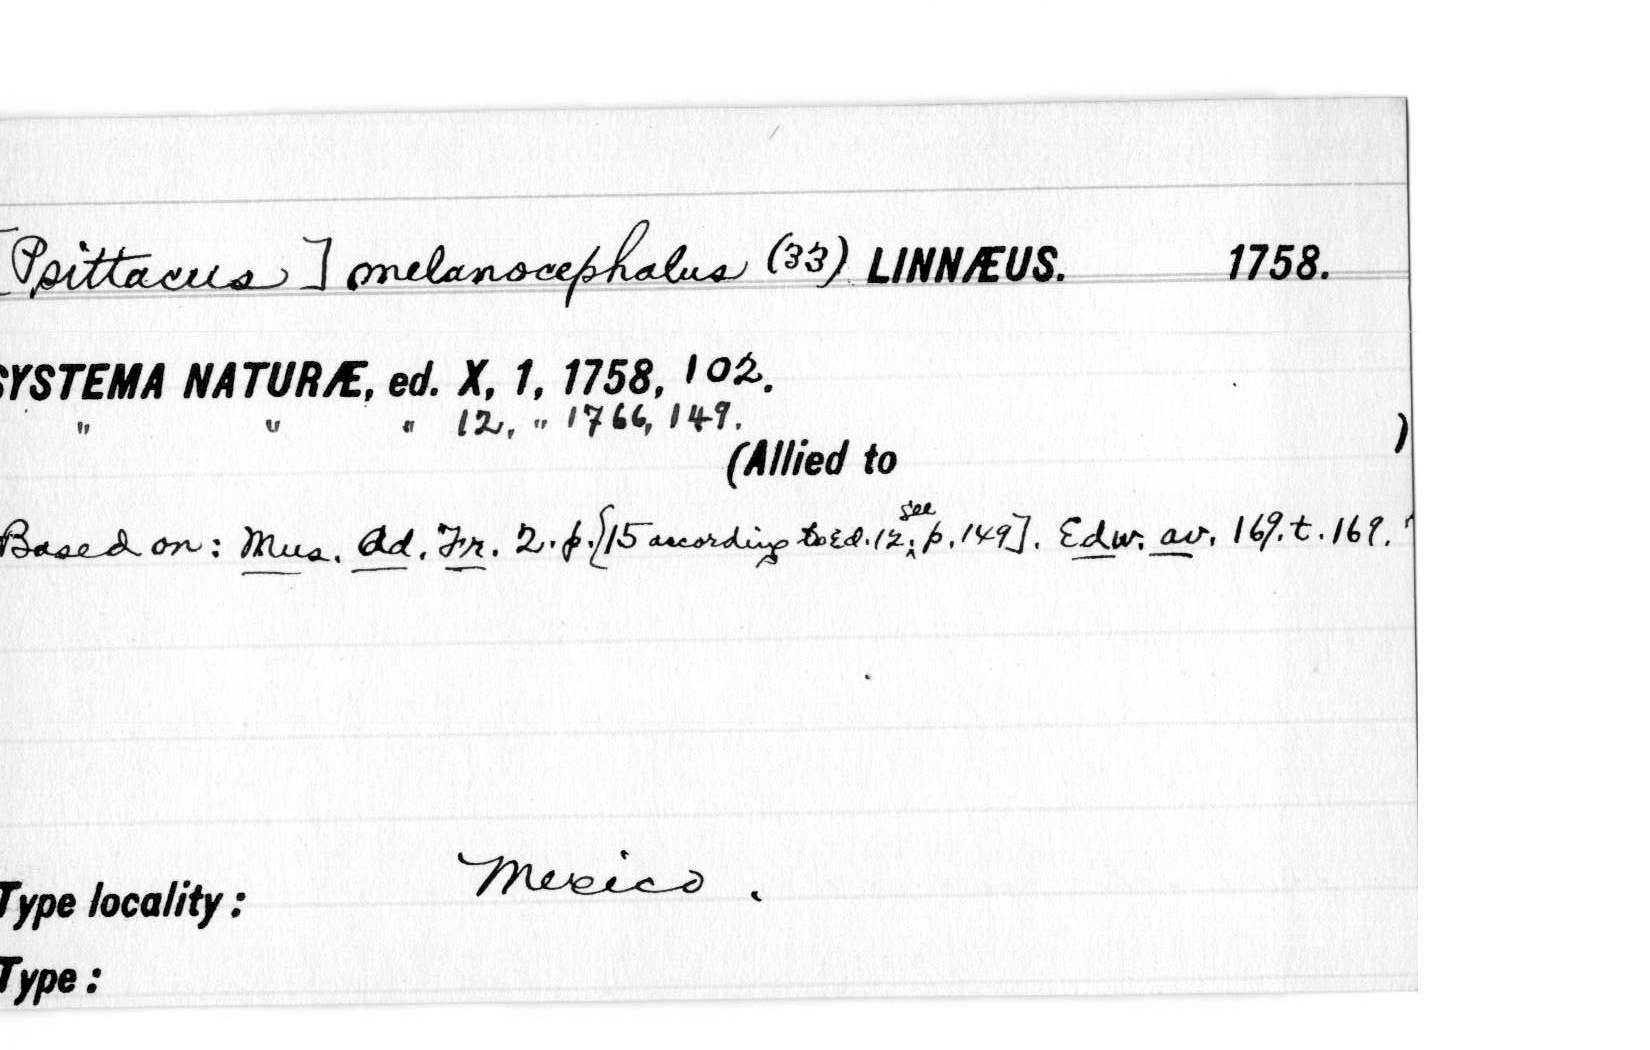 [Psittacus] melanocephalus (33) LINNÆUS. 1758.
SYSTEMA NATURÆ, ed. X, 1, 1758, 102.
" " " 12, " 1766, 149.
(Allied to )
Based on: Mus. Ad. Fr. 2. p. [15 according to Ed. 12; see p. 149]. Edw. av. 169. t. 169.
Mexico.
Type locality:
Type: